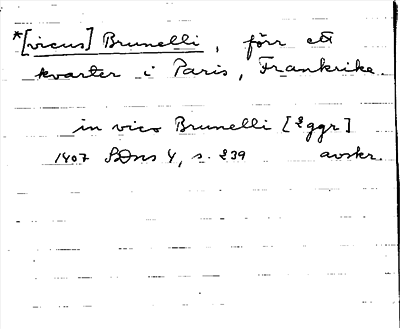 *[vicus] Brunelli, förr ett
kvarter i Paris, Frankrike.
in vico Brunelli [2ggr]
1407 SDns 4, s. 239 avskr.